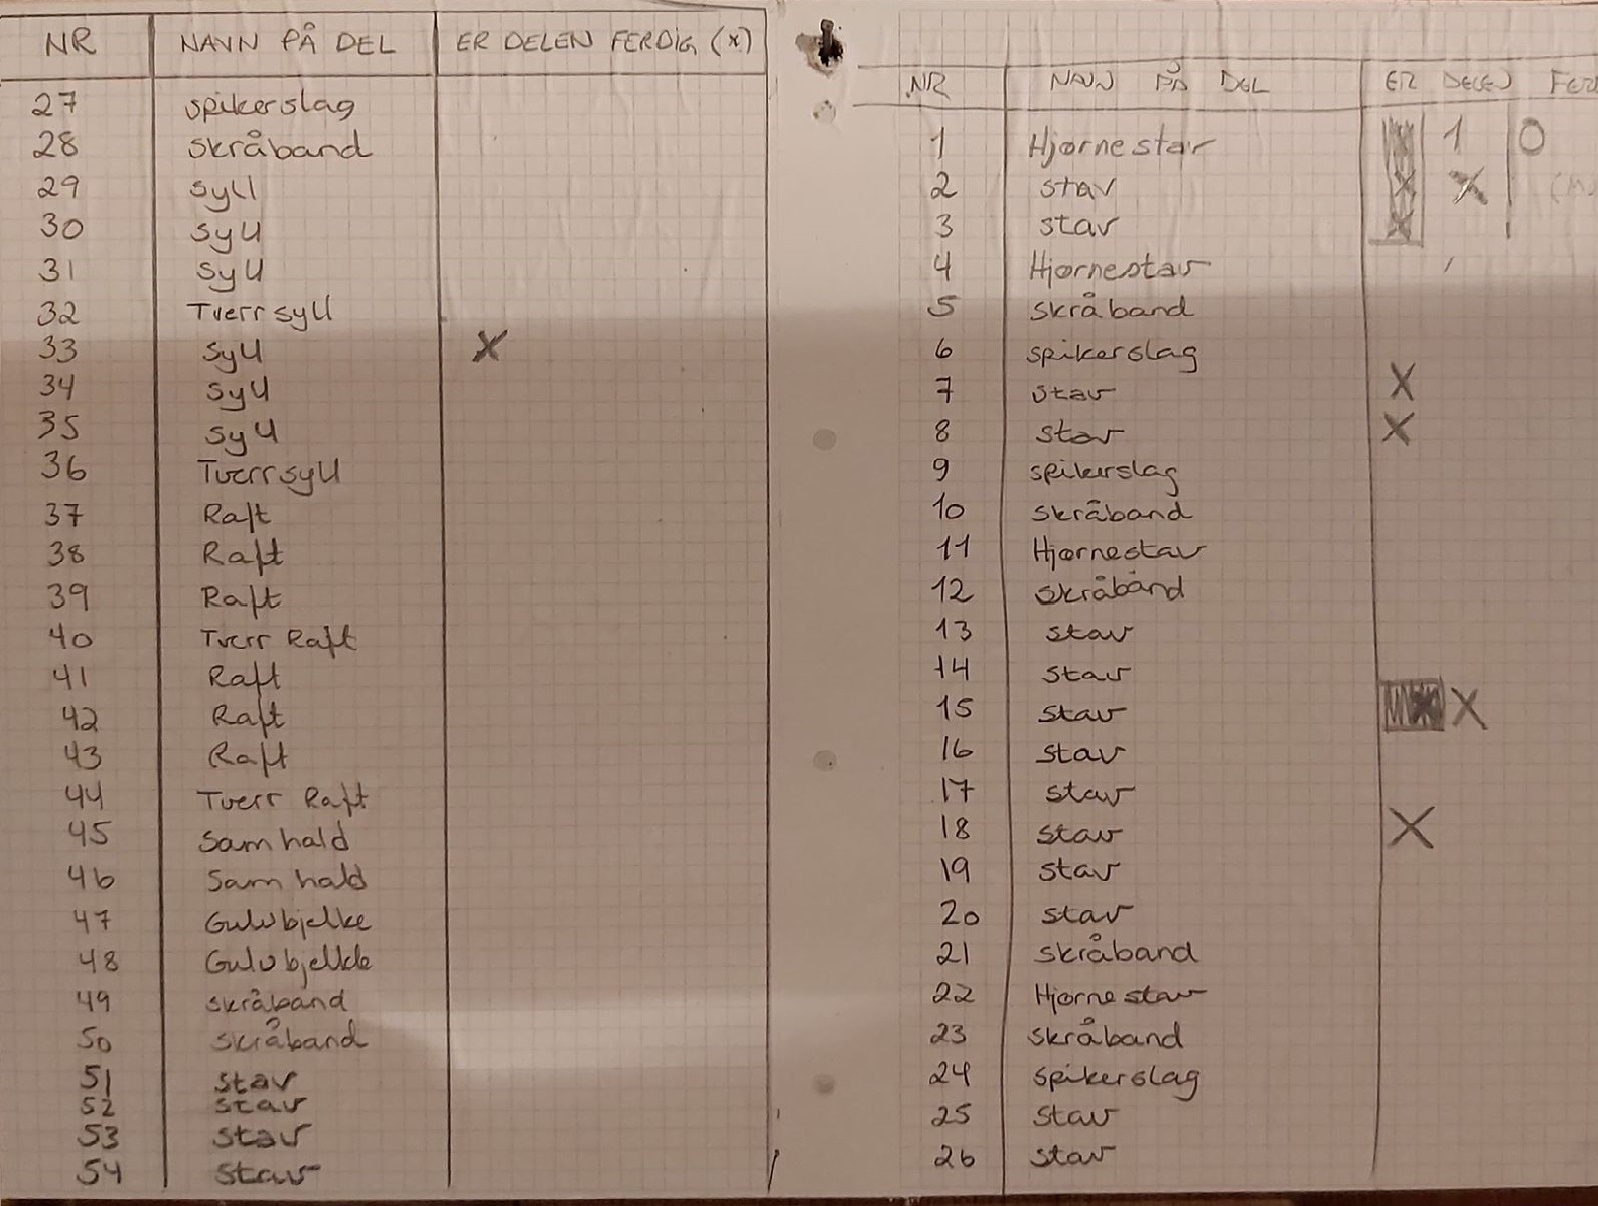 NR NAVN PÅ DEL ER DELEN FERDIG (X)
27 spikerslag
28 skråband
29 syll
30 syll
31 syll
32 Tverrsyll
33 syll X
34 syll
35 syll
36 Tverrsyll
37 Raft
38 Raft
39 Raft
40 Tverr Raft
41 Raft
42 Raft
43 Raft
44 Tverr Raft
45 Samhald
46 Samhald
47 Gulvbjelke
48 Gulvbjelke
49 skråband
50 skråband
51 stav
52 stav
53 stav
54 stav
NR NAVN PÅ DEL ER DELEN FER
1 Hjørnestav 1 0
2 stav X X
3 stav X
4 Hjørnestav
5 skråband
6 spikerslag
7 stav X
8 stav X
9 spikerslag
10 skråband
11 Hjørnestav
12 skråbånd
13 stav
14 stav
15 stav X
16 stav
17 stav
18 stav X
19 stav
20 stav
21 skråband
22 Hjørnestav
23 skråband
24 spikerslag
25 stav
26 stav